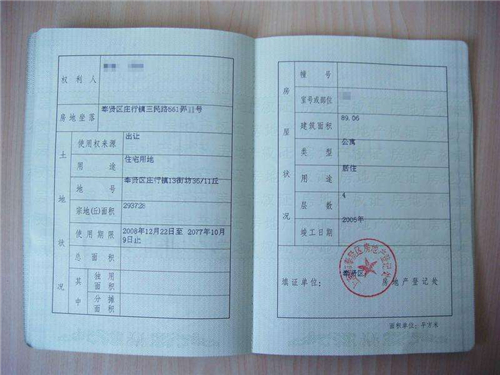 权利人
房地坐落
奉贤区庄行镇三民路861弄11号
土地状况
使用权来源
出让
用途
住宅用地
地号
奉贤区庄行镇13街坊36/11丘
宗地(丘)面积
293728
使用期限
2008年12月22日至2077年10月
9日止
总面积
其中
使用面积
分摊面积
房屋状况
幢号
室号或部位
建筑面积
89.06
类型
公寓
用途
居住
层数
4
竣工日期
2005年
填证单位:
奉贤区
房地产登记处
面积单位:平方米